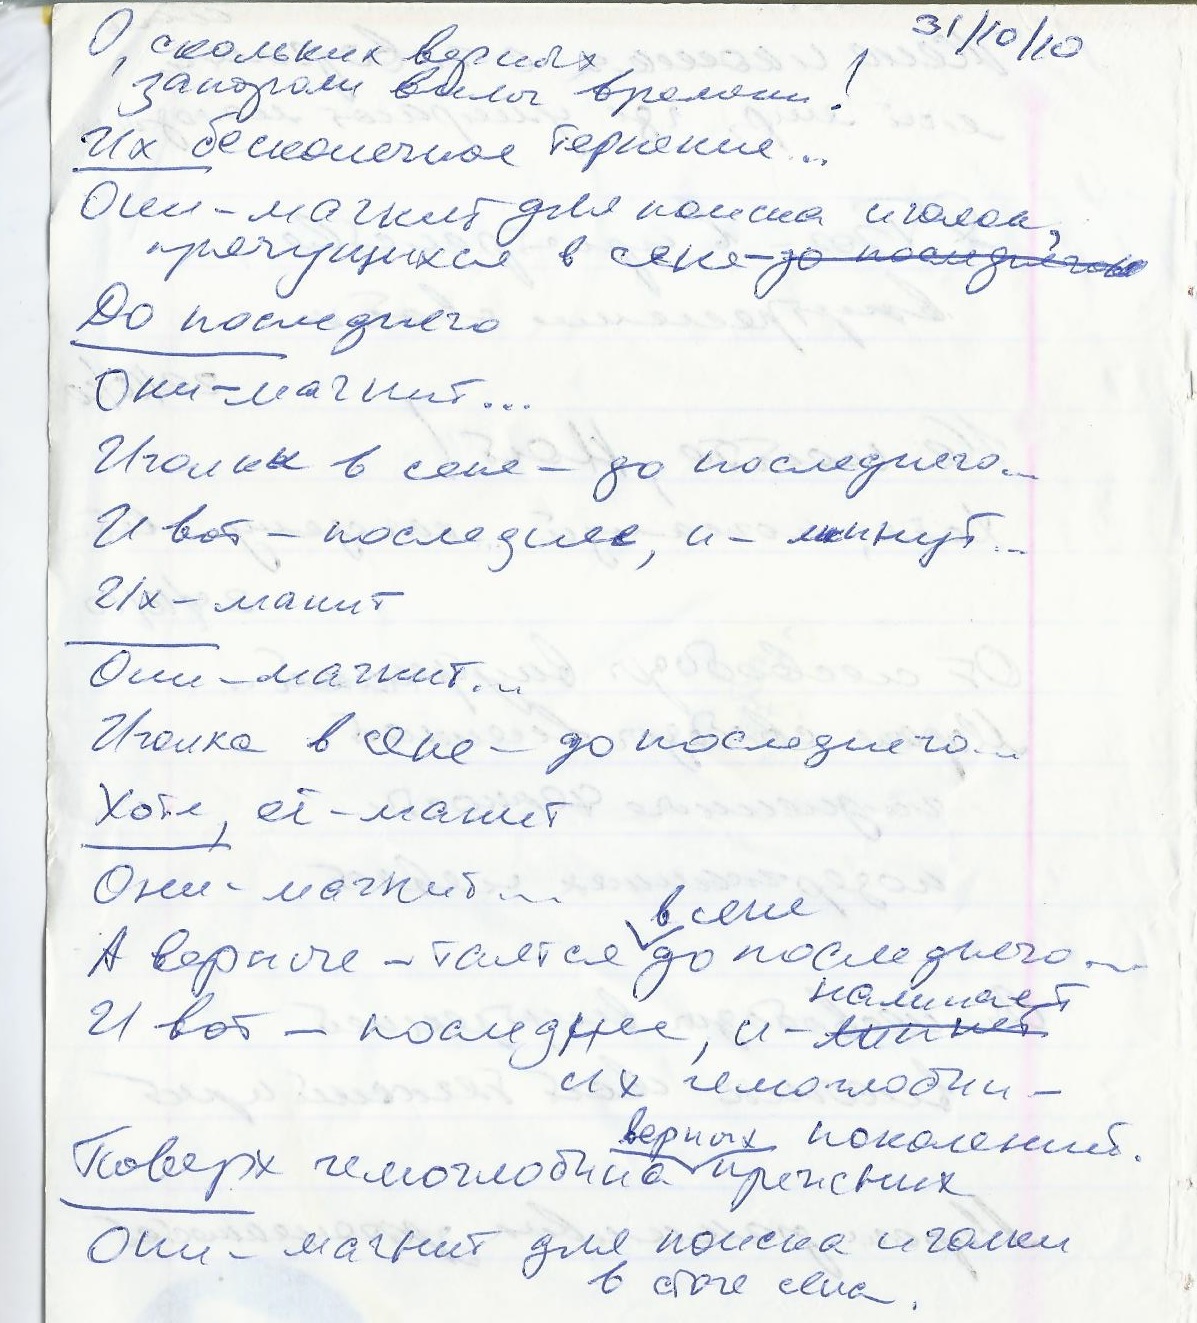 31/10/10
О, скольких верных
запороли вилы времени!
Их бесконечное терпение...
Они-магнит для поиска иголок,
прячущихся в сене-до последнего
До последнего
Они-магнит...
Иголки в сене - до последнего...
И вот - последнее, и - минут...
Их-манит
Они-магнит...
Иголка в сене - до последнего...
Хотя, её-манит
Они-магнит...
в сене
А верные - таятся до последнего...
налипает
И вот - последнее, и - липнет
их гемоглобин -
верных поколений.
Поверх гемоглобина прежних
Они-магнит для поиска иголки
в стоге сена.